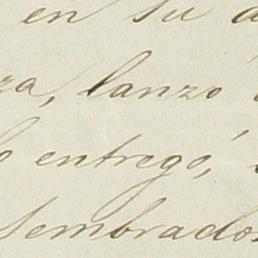 en su a
za, lanzó
o entregó,
sembrados